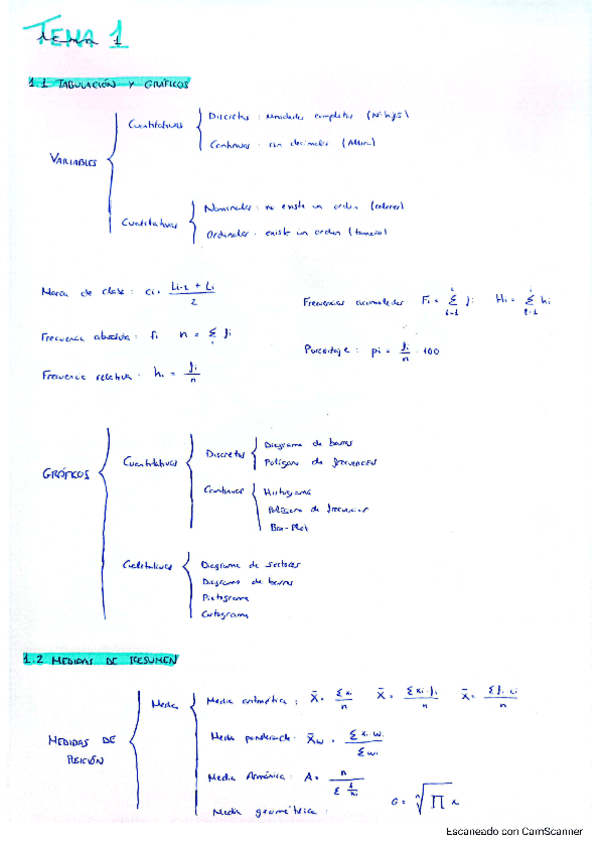 TEMA 1
tema 1
1.1 TABULACIÓN Y GRÁFICOS
VARIABLES
Cuantitativas
Discretas : unidades completas (Nº hijos)
Continuas : con decimales (Altura)
Cualitativas
Nominales : no existe un orden (colores)
Ordinales : existe un orden (tamaño)
Marca de clase : ci = (Li-1 + Li) / 2
Frecuencias acumuladas Fi = Σ fi Hi = Σ hi
Frecuencia absoluta : fi n = Σ fi
Porcentaje : pi = fi / n · 100
Frecuencia relativa : hi = fi / n
GRÁFICOS
Cuantitativas
Discretas
Diagrama de barras
Polígono de frecuencias
Continuas
Histograma
Polígono de frecuencias
Box-Plot
Cualitativas
Diagrama de sectores
Diagrama de barras
Pictograma
Cartograma
1.2 MEDIDAS DE RESUMEN
MEDIDAS DE
POSICIÓN
Media
Media aritmética : X̄ = Σ xi / n X̄ = Σ xi · fi / n X̄ = Σ fi · ci / n
Media ponderada : X̄w = Σ xi wi / Σ wi
Media Armónica : A = n / Σ 1/xi
Media geométrica : G = ⁿ√∏ xi
Escaneado con CamScanner